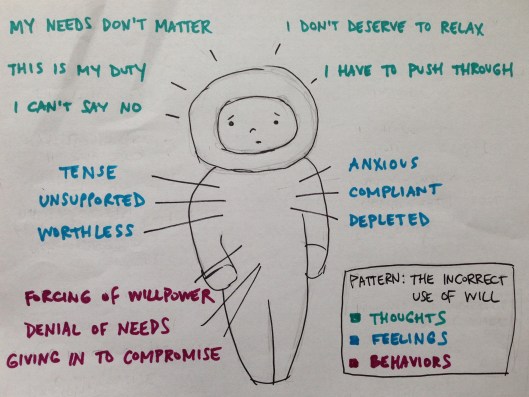 MY NEEDS DON'T MATTER
I DON'T DESERVE TO RELAX
THIS IS MY DUTY
I HAVE TO PUSH THROUGH
I CAN'T SAY NO
TENSE
UNSUPPORTED
WORTHLESS
ANXIOUS
COMPLIANT
DEPLETED
FORCING OF WILLPOWER
DENIAL OF NEEDS
GIVING IN TO COMPROMISE
PATTERN: THE INCORRECT
USE OF WILL
THOUGHTS
FEELINGS
BEHAVIORS